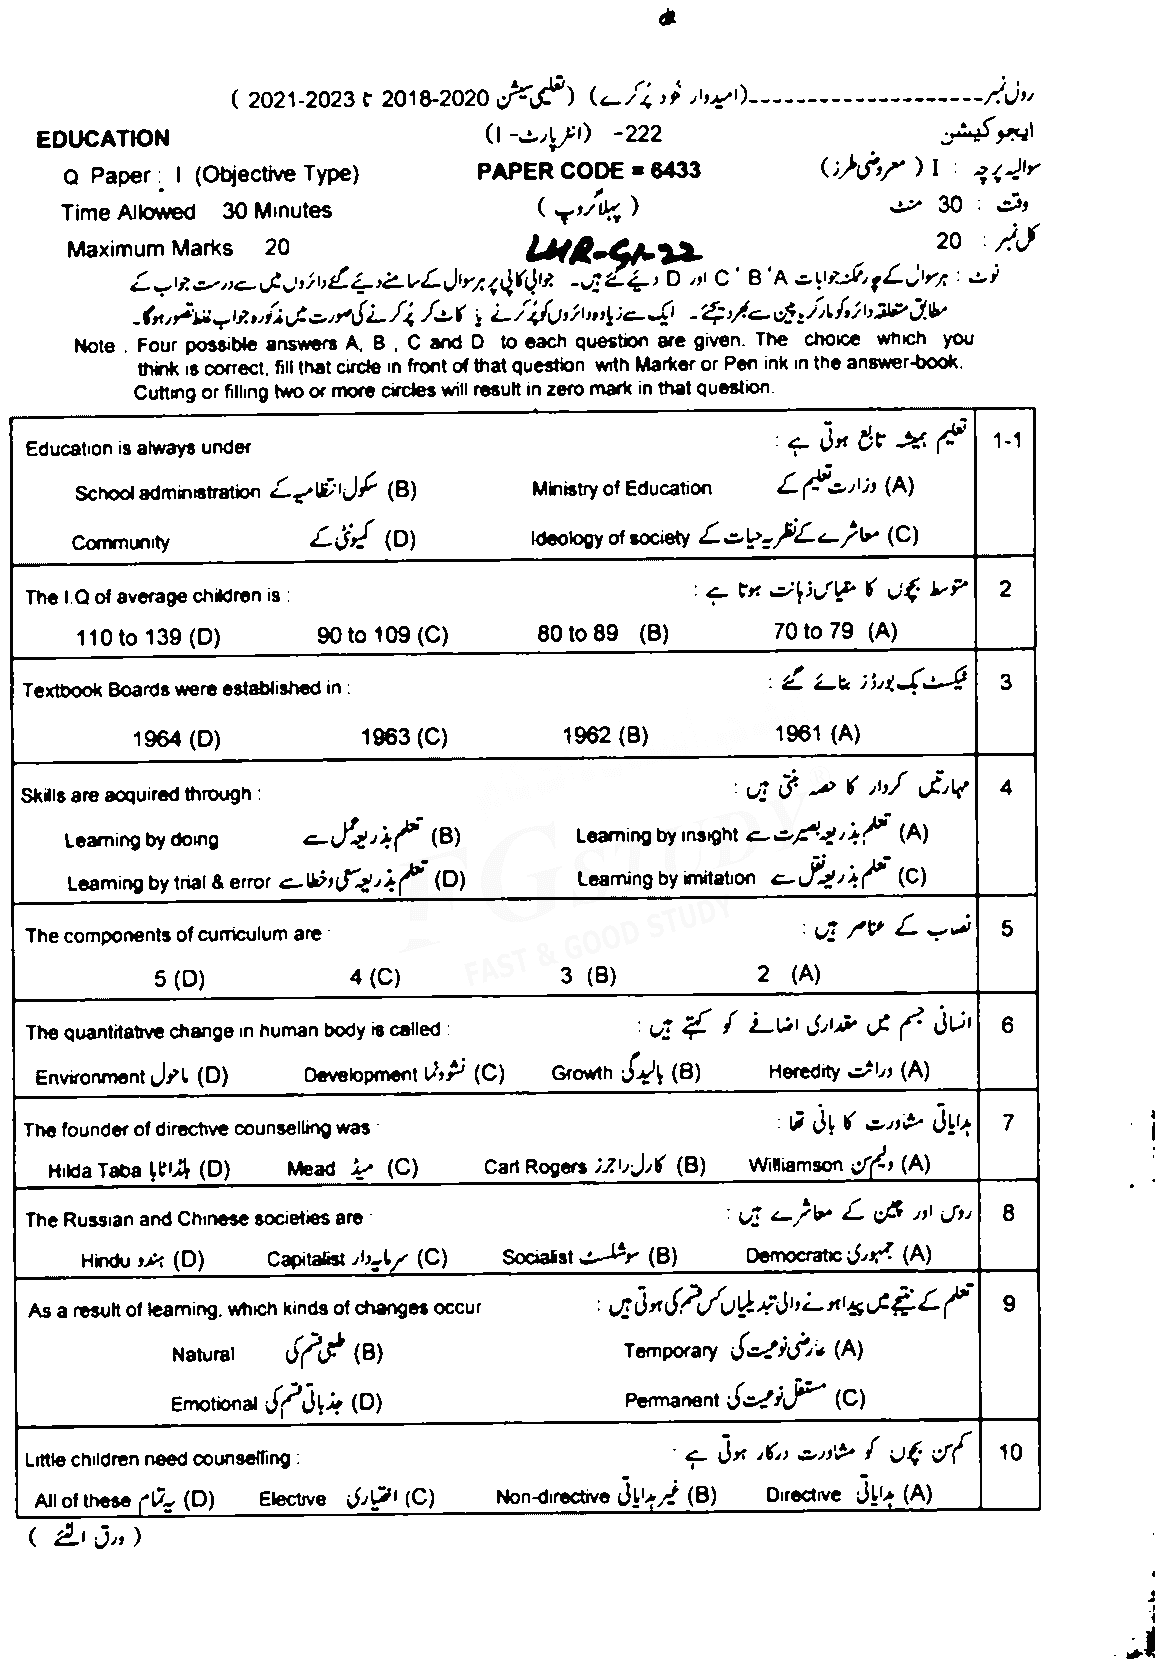 رول نمبر---------------------(امیدوار خود پُر کرے) (تعلیمی سیشن 2020-2018 تا 2023-2021 )
EDUCATION 222- (انٹر پارٹ - I) ایجوکیشن
Q Paper : I (Objective Type) PAPER CODE = 6433 سوالیہ پرچہ : I ( معروضی طرز)
Time Allowed 30 Minutes ( پہلا گروپ ) وقت : 30 منٹ
Maximum Marks 20 LHR-G1-22 کل نمبر : 20
نوٹ : ہر سوال کے چار ممکنہ جوابات A ' B ' C اور D دیئے گئے ہیں۔ جوابی کاپی پر ہر سوال کے سامنے دیئے گئے دائروں میں سے درست جواب کے
مطابق متعلقہ دائرہ کو مارکر یا پین سے بھر دیجئے۔ ایک سے زیادہ دائروں کو پُر کرنے یا کاٹ کر پُر کرنے کی صورت میں مذکورہ جواب غلط تصور ہوگا۔
Note . Four possible answers A, B , C and D to each question are given. The choice which you
think is correct, fill that circle in front of that question with Marker or Pen ink in the answer-book.
Cutting or filling two or more circles will result in zero mark in that question.
Education is always under تعلیم ہمیشہ تابع ہوتی ہے : 1-1
School administration سکول انتظامیہ کے (B) Ministry of Education وزارت تعلیم کے (A)
Community کمیونٹی کے (D) Ideology of society معاشرے کے نظریہ حیات کے (C)
The I.Q of average children is : متوسط بچوں کا مقیاس ذہانت ہوتا ہے : 2
110 to 139 (D) 90 to 109 (C) 80 to 89 (B) 70 to 79 (A)
Textbook Boards were established in : ٹیکسٹ بک بورڈز بنائے گئے : 3
1964 (D) 1963 (C) 1962 (B) 1961 (A)
Skills are acquired through : مہارتیں کردار کا حصہ بنتی ہیں : 4
Learning by doing تعلم بذریعہ عمل سے (B) Learning by insight تعلم بذریعہ بصیرت سے (A)
Learning by trial & error تعلم بذریعہ سعی و خطا سے (D) Learning by imitation تعلم بذریعہ نقل سے (C)
The components of curriculum are : نصاب کے عناصر ہیں : 5
5 (D) 4 (C) 3 (B) 2 (A)
FG STUDY
FAST & GOOD STUDY
The quantitative change in human body is called : انسانی جسم میں مقداری اضافے کو کہتے ہیں : 6
Environment ماحول (D) Development نشوونما (C) Growth بالیدگی (B) Heredity وراثت (A)
The founder of directive counselling was : ہدایاتی مشاورت کا بانی تھا : 7
Hilda Taba ہلڈا ٹابا (D) Mead میڈ (C) Carl Rogers کارل راجرز (B) Williamson ولیم سن (A)
The Russian and Chinese societies are : روس اور چین کے معاشرے ہیں : 8
Hindu ہندو (D) Capitalist سرمایہ دار (C) Socialist سوشلسٹ (B) Democratic جمہوری (A)
As a result of learning, which kinds of changes occur تعلم کے نتیجے میں پیدا ہونے والی تبدیلیاں کس قسم کی ہوتی ہیں : 9
Natural طبعی قسم کی (B) Temporary عارضی نوعیت کی (A)
Emotional جذباتی قسم کی (D) Permanent مستقل نوعیت کی (C)
Little children need counselling : کم سن بچوں کو مشاورت درکار ہوتی ہے : 10
All of these یہ تمام (D) Elective اختیاری (C) Non-directive غیر ہدایاتی (B) Directive ہدایاتی (A)
( ورق الٹئے )